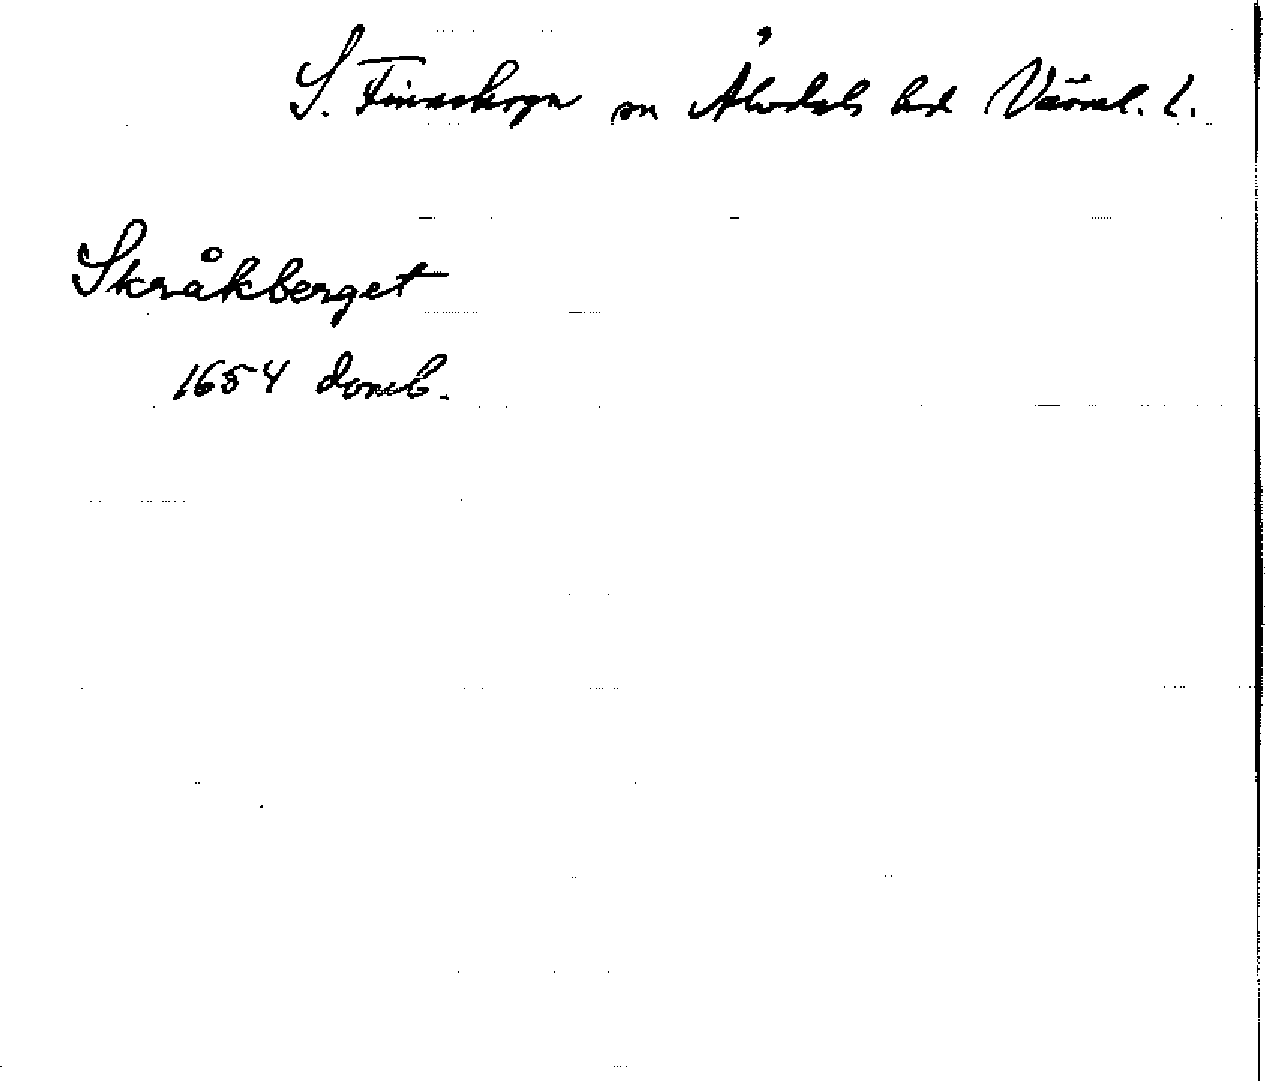 S. Finnskoga sn Älvdals hd Värml. l.
Skråkberget
1654 domb.